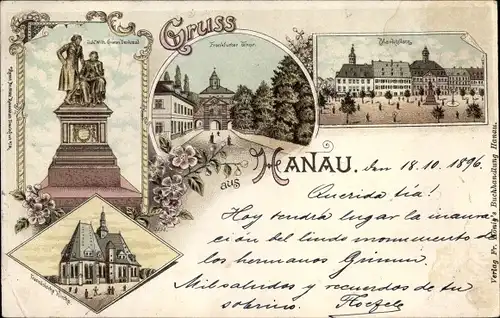 Gruss
aus
HANAU.
Jac. & Wilh. Grimm Denkmal
Frankfurter Thor.
Marktplatz
Kirche
Verlag Fr. König's Buchhandlung Hanau.
den 18.10.1896.
Querida tia!
Hoy tendrá lugar la inaura-
ción del lindo monumento de
los hermanos Grimm
Mil saludos y recuerdos de tu
sobrino.